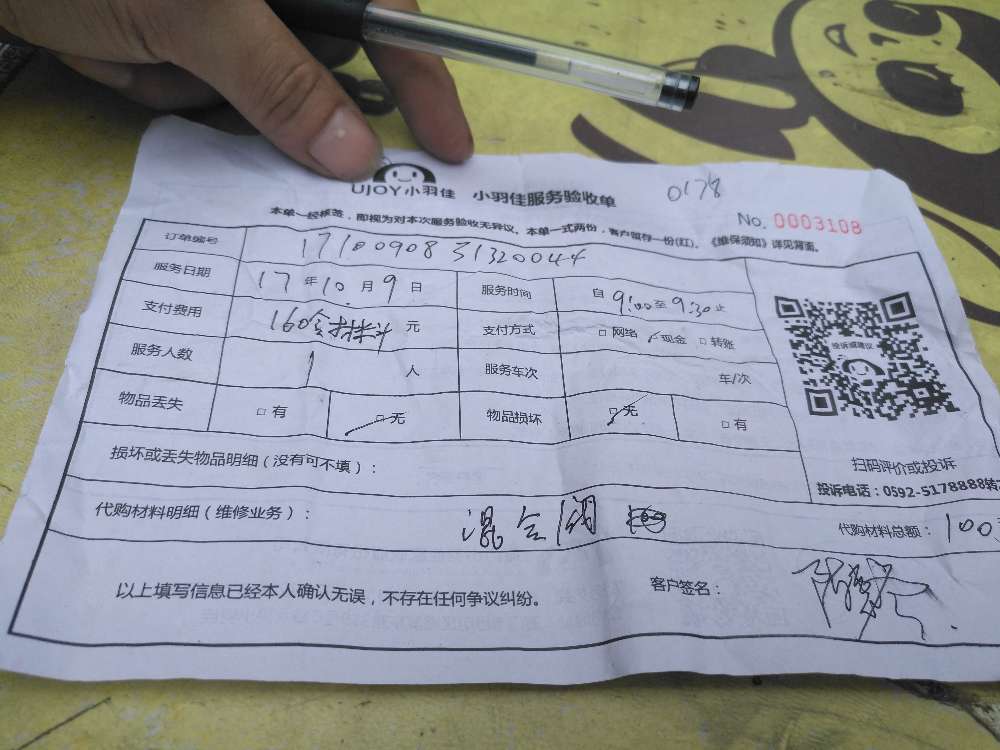 UJOY小羽佳 小羽佳服务验收单 0178
No. 0003108
本单一经核签，即视为对本次服务验收无异议。本单一式两份，客户留存一份(红)。《维保须知》详见背面。
订单编号 1710090831320044
服务日期 17年10月9日 服务时间 自9:00至9:30止
支付费用 160含材料 元 支付方式 □网络 ✓现金 □转账
服务人数 1 人 服务车次 车/次
物品丢失 □有 □无 物品损坏 □无 □有
投诉或建议
损坏或丢失物品明细（没有可不填）：
扫码评价或投诉
投诉电话：0592-5178888转
代购材料明细（维修业务）： 混合阀
代购材料总额： 100
以上填写信息已经本人确认无误，不存在任何争议纠纷。 客户签名：